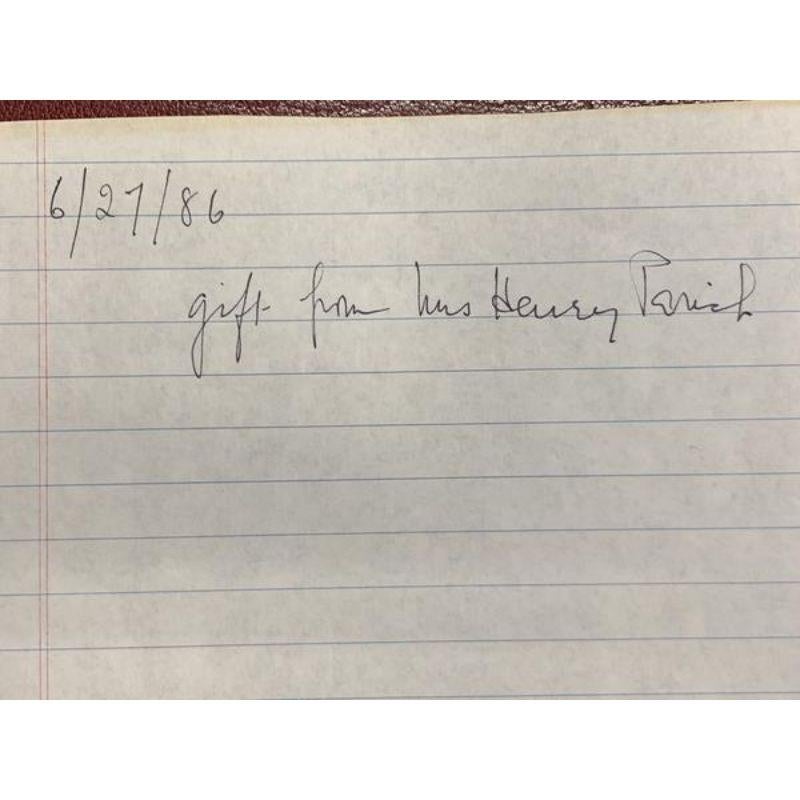 6/27/86
gift from Mrs Henry Parish